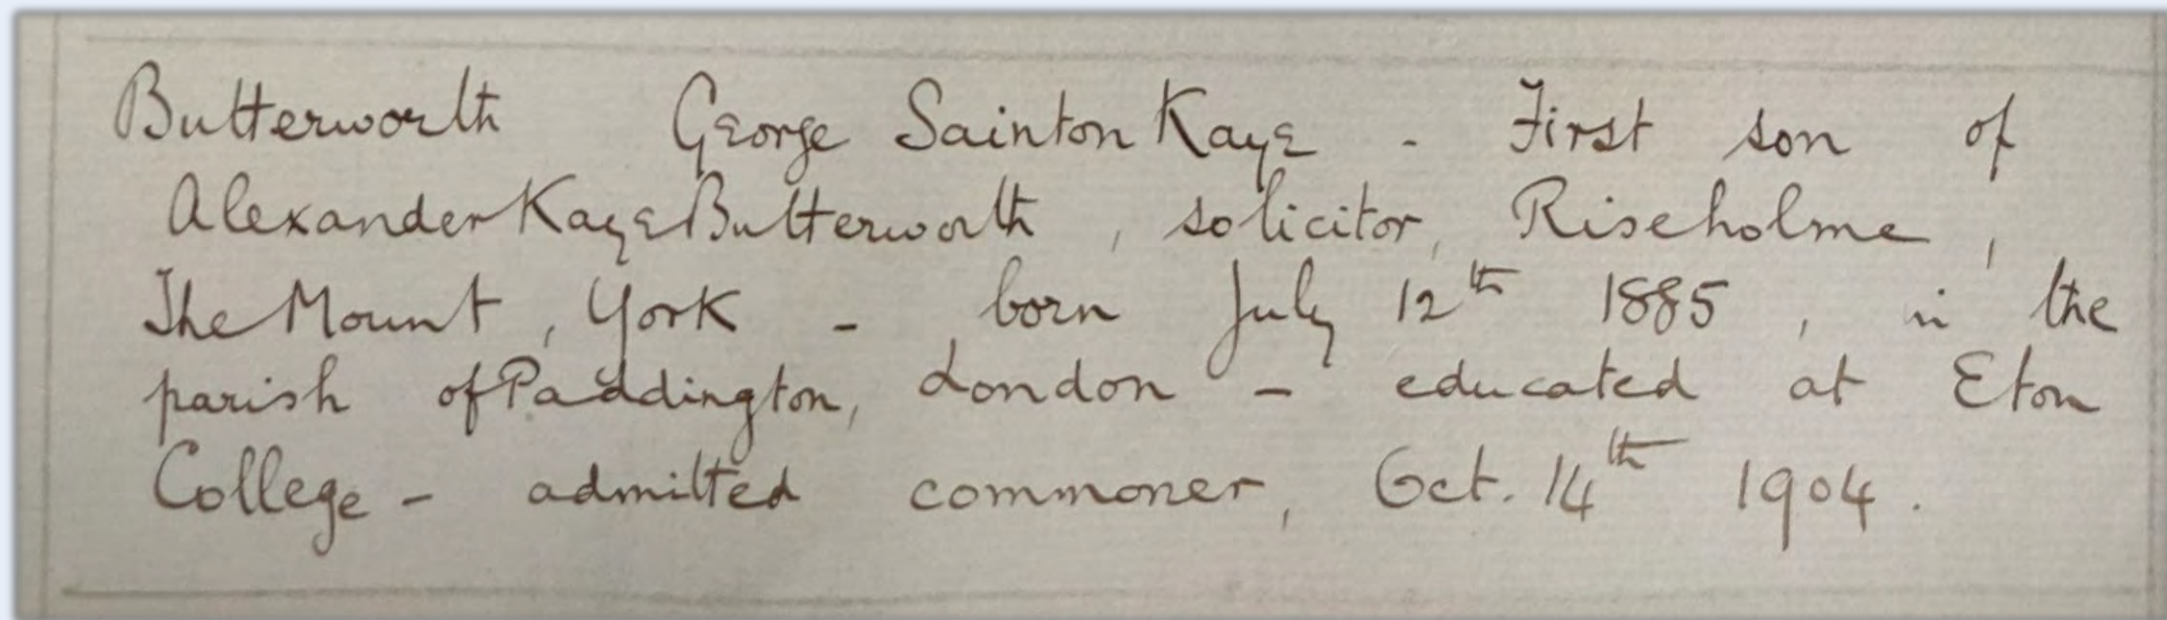 Butterworth George Sainton Kaye - First son of
Alexander Kaye Butterworth, solicitor, Riseholme,
The Mount, York - born July 12th 1885, in the
parish of Paddington, London - educated at Eton
College - admitted commoner, Oct. 14th 1904.